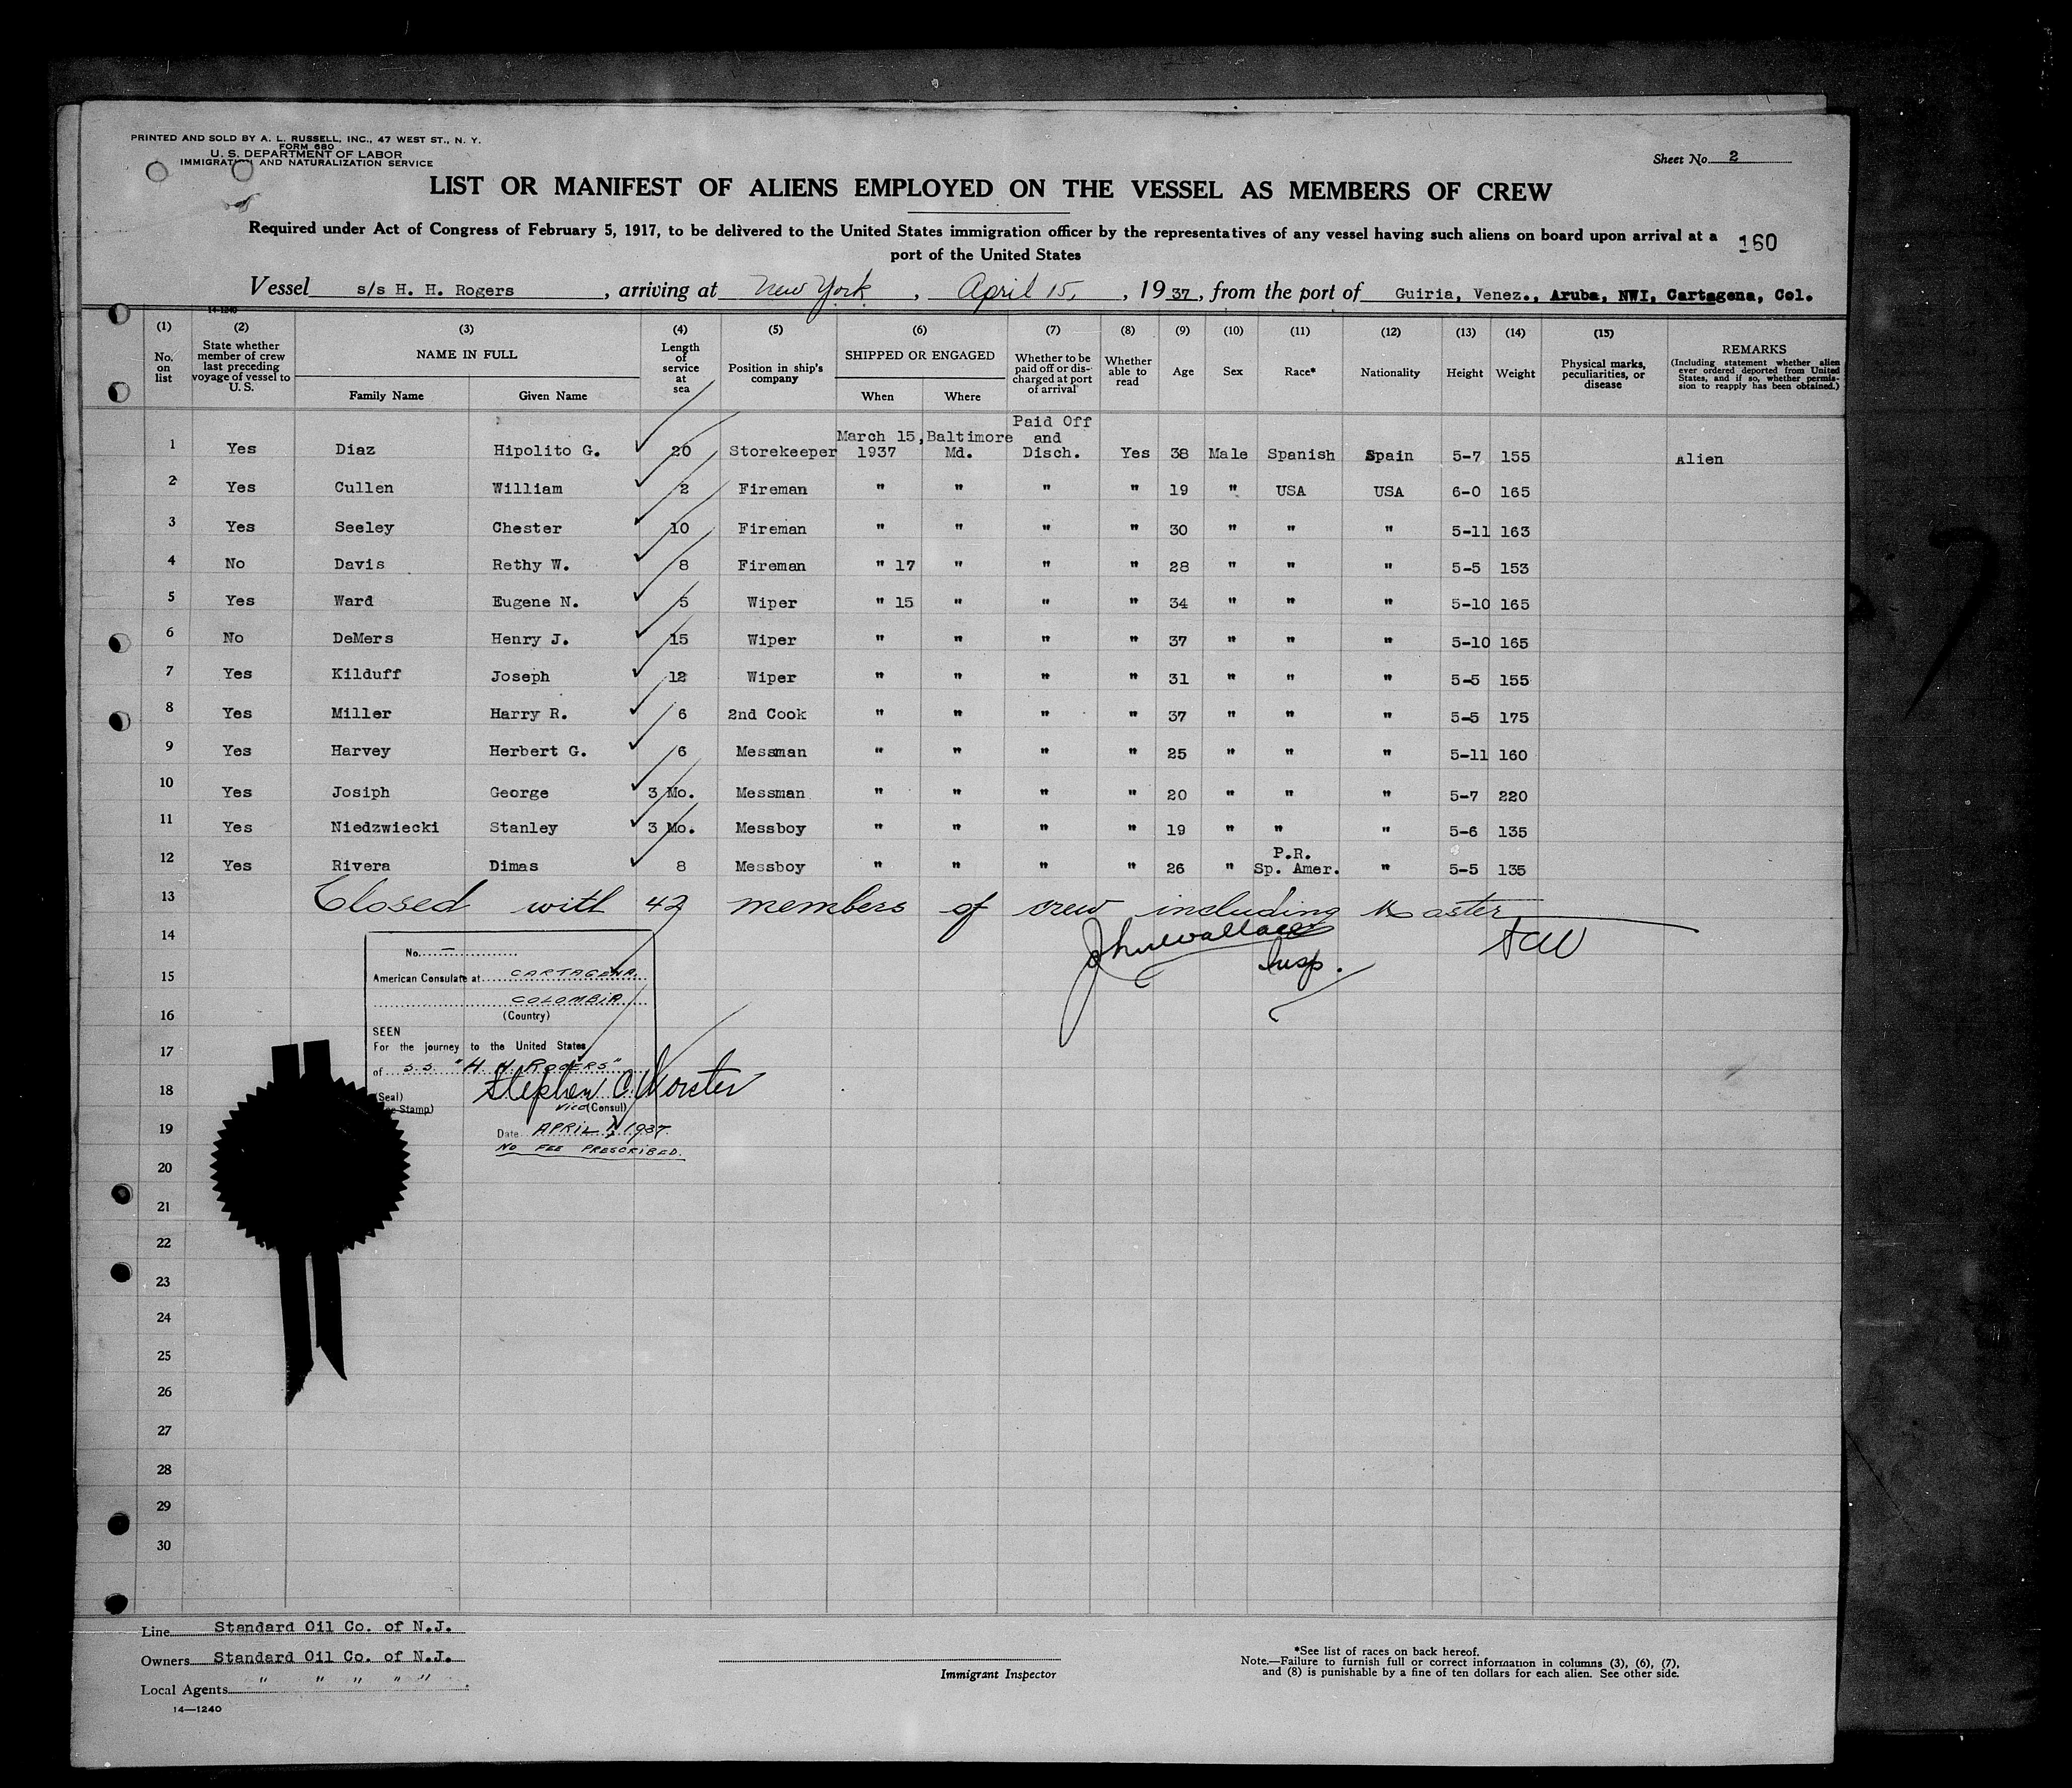 PRINTED AND SOLD BY A. L. RUSSELL, INC., 47 WEST ST., N. Y.
FORM 680
U. S. DEPARTMENT OF LABOR
IMMIGRATION AND NATURALIZATION SERVICE
Sheet No. 2
LIST OR MANIFEST OF ALIENS EMPLOYED ON THE VESSEL AS MEMBERS OF CREW
Required under Act of Congress of February 5, 1917, to be delivered to the United States immigration officer by the representatives of any vessel having such aliens on board upon arrival at a
port of the United States
160
Vessel s/s H. H. Rogers, arriving at New York, April 15, 1937, from the port of Guiria, Venez., Aruba, NWI, Cartagena, Col.
14-1240
(1) (2) (3) (4) (5) (6) (7) (8) (9) (10) (11) (12) (13) (14) (15)
No. on list
State whether member of crew last preceding voyage of vessel to U. S.
NAME IN FULL
Family Name Given Name
Length of service at sea
Position in ship's company
SHIPPED OR ENGAGED
When Where
Whether to be paid off or discharged at port of arrival
Whether able to read
Age
Sex
Race*
Nationality
Height
Weight
Physical marks, peculiarities, or disease
REMARKS
(Including statement whether alien ever ordered deported from United States, and if so, whether permission to reapply has been obtained.)
1 Yes Diaz Hipolito G. 20 Storekeeper March 15, 1937 Baltimore Md. Paid Off and Disch. Yes 38 Male Spanish Spain 5-7 155 Alien
2 Yes Cullen William 2 Fireman " " " " 19 " USA USA 6-0 165
3 Yes Seeley Chester 10 Fireman " " " " 30 " " " 5-11 163
4 No Davis Rethy W. 8 Fireman " 17 " " " 28 " " " 5-5 153
5 Yes Ward Eugene N. 5 Wiper " 15 " " " 34 " " " 5-10 165
6 No DeMers Henry J. 15 Wiper " " " " 37 " " " 5-10 165
7 Yes Kilduff Joseph 12 Wiper " " " " 31 " " " 5-5 155
8 Yes Miller Harry R. 6 2nd Cook " " " " 37 " " " 5-5 175
9 Yes Harvey Herbert G. 6 Messman " " " " 25 " " " 5-11 160
10 Yes Josiph George 3 Mo. Messman " " " " 20 " " " 5-7 220
11 Yes Niedzwiecki Stanley 3 Mo. Messboy " " " " 19 " " " 5-6 135
12 Yes Rivera Dimas 8 Messboy " " " " 26 " P.R. Sp. Amer. " 5-5 135
13 Closed with 42 members of crew including Master
14 Jno Wallace
Insp.
No. —
American Consulate at CARTAGENA
15
COLOMBIA
(Country)
16
SEEN
For the journey to the United States
17
of S.S. "H. H. ROGERS"
18 Stephen C. Worster
(Seal)
Stamp)
Vice (Consul)
19
Date APRIL 1937
NO FEE PRESCRIBED.
20
21
22
23
24
25
26
27
28
29
30
Line Standard Oil Co. of N.J.
Owners Standard Oil Co. of N.J.
Local Agents " " " " "
14—1240
Immigrant Inspector
*See list of races on back hereof.
Note.—Failure to furnish full or correct information in columns (3), (6), (7),
and (8) is punishable by a fine of ten dollars for each alien. See other side.